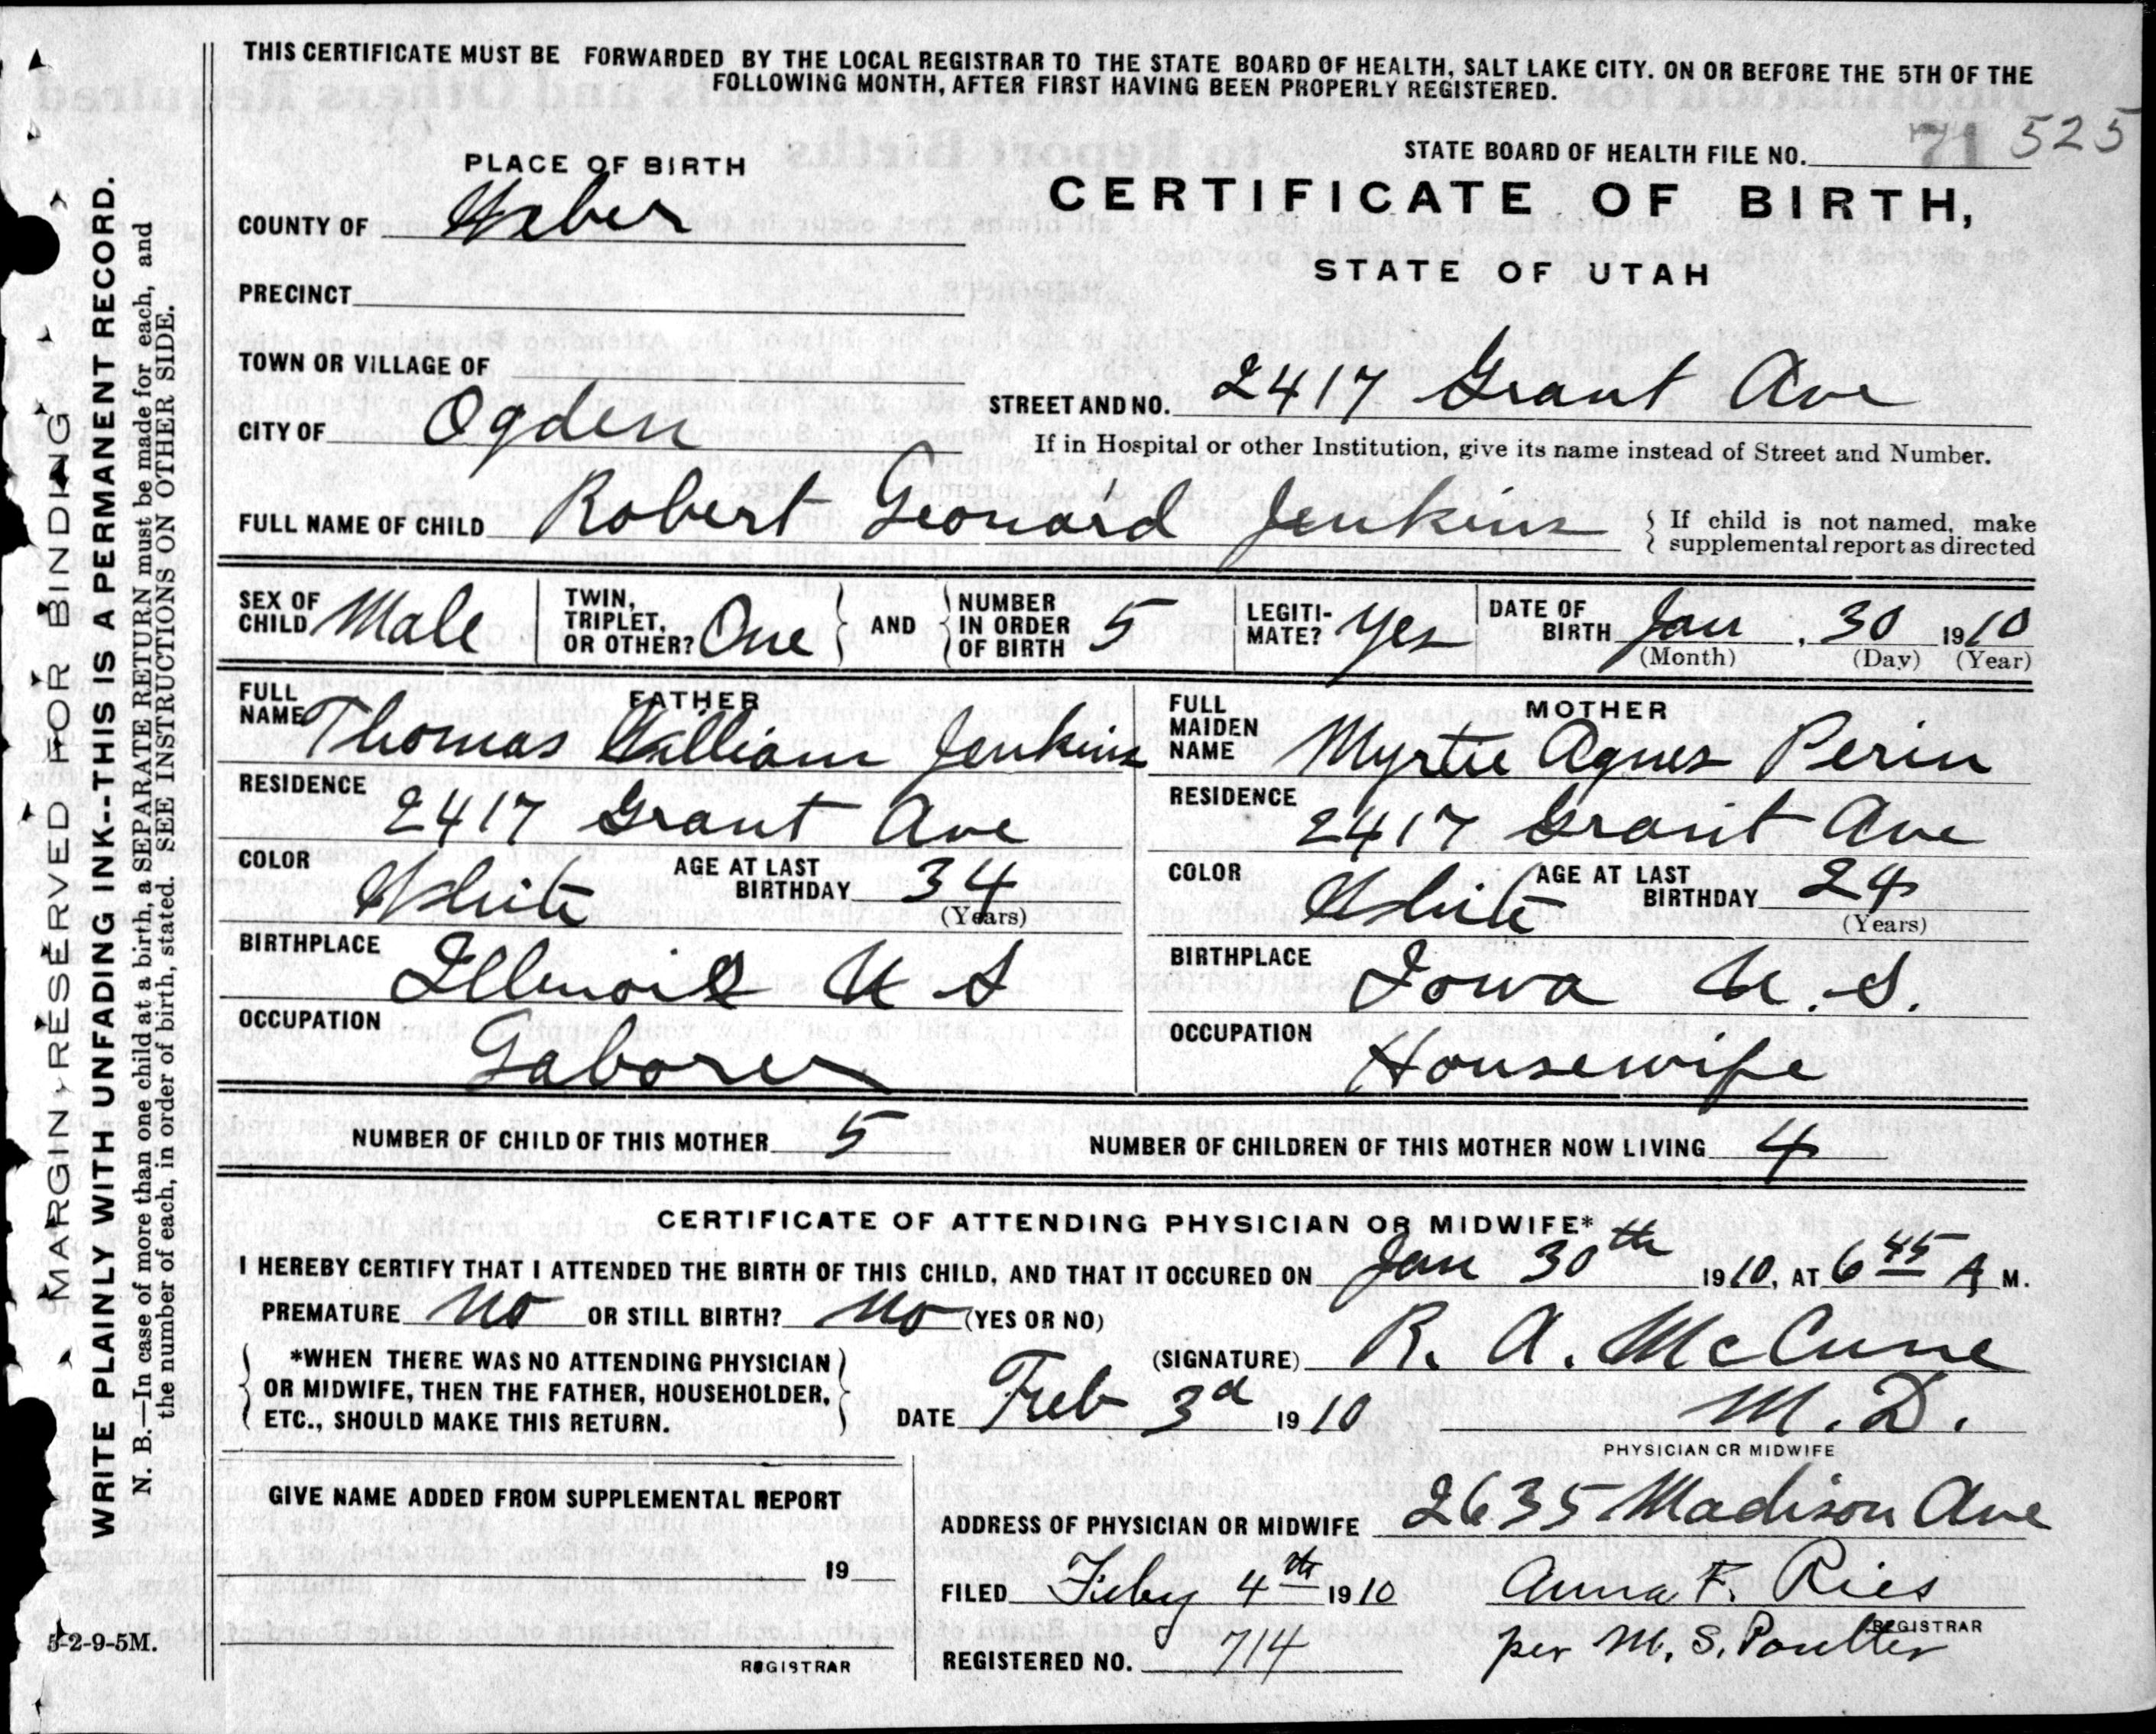 THIS CERTIFICATE MUST BE FORWARDED BY THE LOCAL REGISTRAR TO THE STATE BOARD OF HEALTH, SALT LAKE CITY. ON OR BEFORE THE 5TH OF THE
FOLLOWING MONTH, AFTER FIRST HAVING BEEN PROPERLY REGISTERED.
STATE BOARD OF HEALTH FILE NO. 71 525
PLACE OF BIRTH
CERTIFICATE OF BIRTH,
COUNTY OF Weber
STATE OF UTAH
PRECINCT
TOWN OR VILLAGE OF
STREET AND NO. 2417 Grant Ave
CITY OF Ogden
If in Hospital or other Institution, give its name instead of Street and Number.
FULL NAME OF CHILD Robert Leonard Jenkins
If child is not named, make
supplemental report as directed
SEX OF CHILD Male
TWIN, TRIPLET, OR OTHER? One
AND
NUMBER IN ORDER OF BIRTH 5
LEGITI-MATE? Yes
DATE OF BIRTH Jan, 30 1910
(Month) (Day) (Year)
FATHER
FULL NAME Thomas William Jenkins
RESIDENCE 2417 Grant Ave
COLOR White
AGE AT LAST BIRTHDAY 34
(Years)
BIRTHPLACE Illinois U S
OCCUPATION Laborer
MOTHER
FULL MAIDEN NAME Myrtie Agnes Perin
RESIDENCE 2417 Grant Ave
COLOR White
AGE AT LAST BIRTHDAY 24
(Years)
BIRTHPLACE Iowa U.S.
OCCUPATION Housewife
NUMBER OF CHILD OF THIS MOTHER 5
NUMBER OF CHILDREN OF THIS MOTHER NOW LIVING 4
CERTIFICATE OF ATTENDING PHYSICIAN OR MIDWIFE*
I HEREBY CERTIFY THAT I ATTENDED THE BIRTH OF THIS CHILD, AND THAT IT OCCURED ON Jan 30th 1910, AT 6 45 A M.
PREMATURE No OR STILL BIRTH? No (YES OR NO)
*WHEN THERE WAS NO ATTENDING PHYSICIAN
OR MIDWIFE, THEN THE FATHER, HOUSEHOLDER,
ETC., SHOULD MAKE THIS RETURN.
(SIGNATURE) R. A. McCune
DATE Feb 3d 1910
M.D.
PHYSICIAN OR MIDWIFE
GIVE NAME ADDED FROM SUPPLEMENTAL REPORT
19
REGISTRAR
ADDRESS OF PHYSICIAN OR MIDWIFE 2635 Madison Ave
FILED Feby 4th 1910
Anna F. Ries
REGISTRAR
REGISTERED NO. 714
per M. S. Poulter
MARGIN RESERVED FOR BINDING
WRITE PLAINLY WITH UNFADING INK--THIS IS A PERMANENT RECORD.
N. B.—In case of more than one child at a birth, a SEPARATE RETURN must be made for each, and
the number of each, in order of birth, stated. SEE INSTRUCTIONS ON OTHER SIDE.
5-2-9-5M.